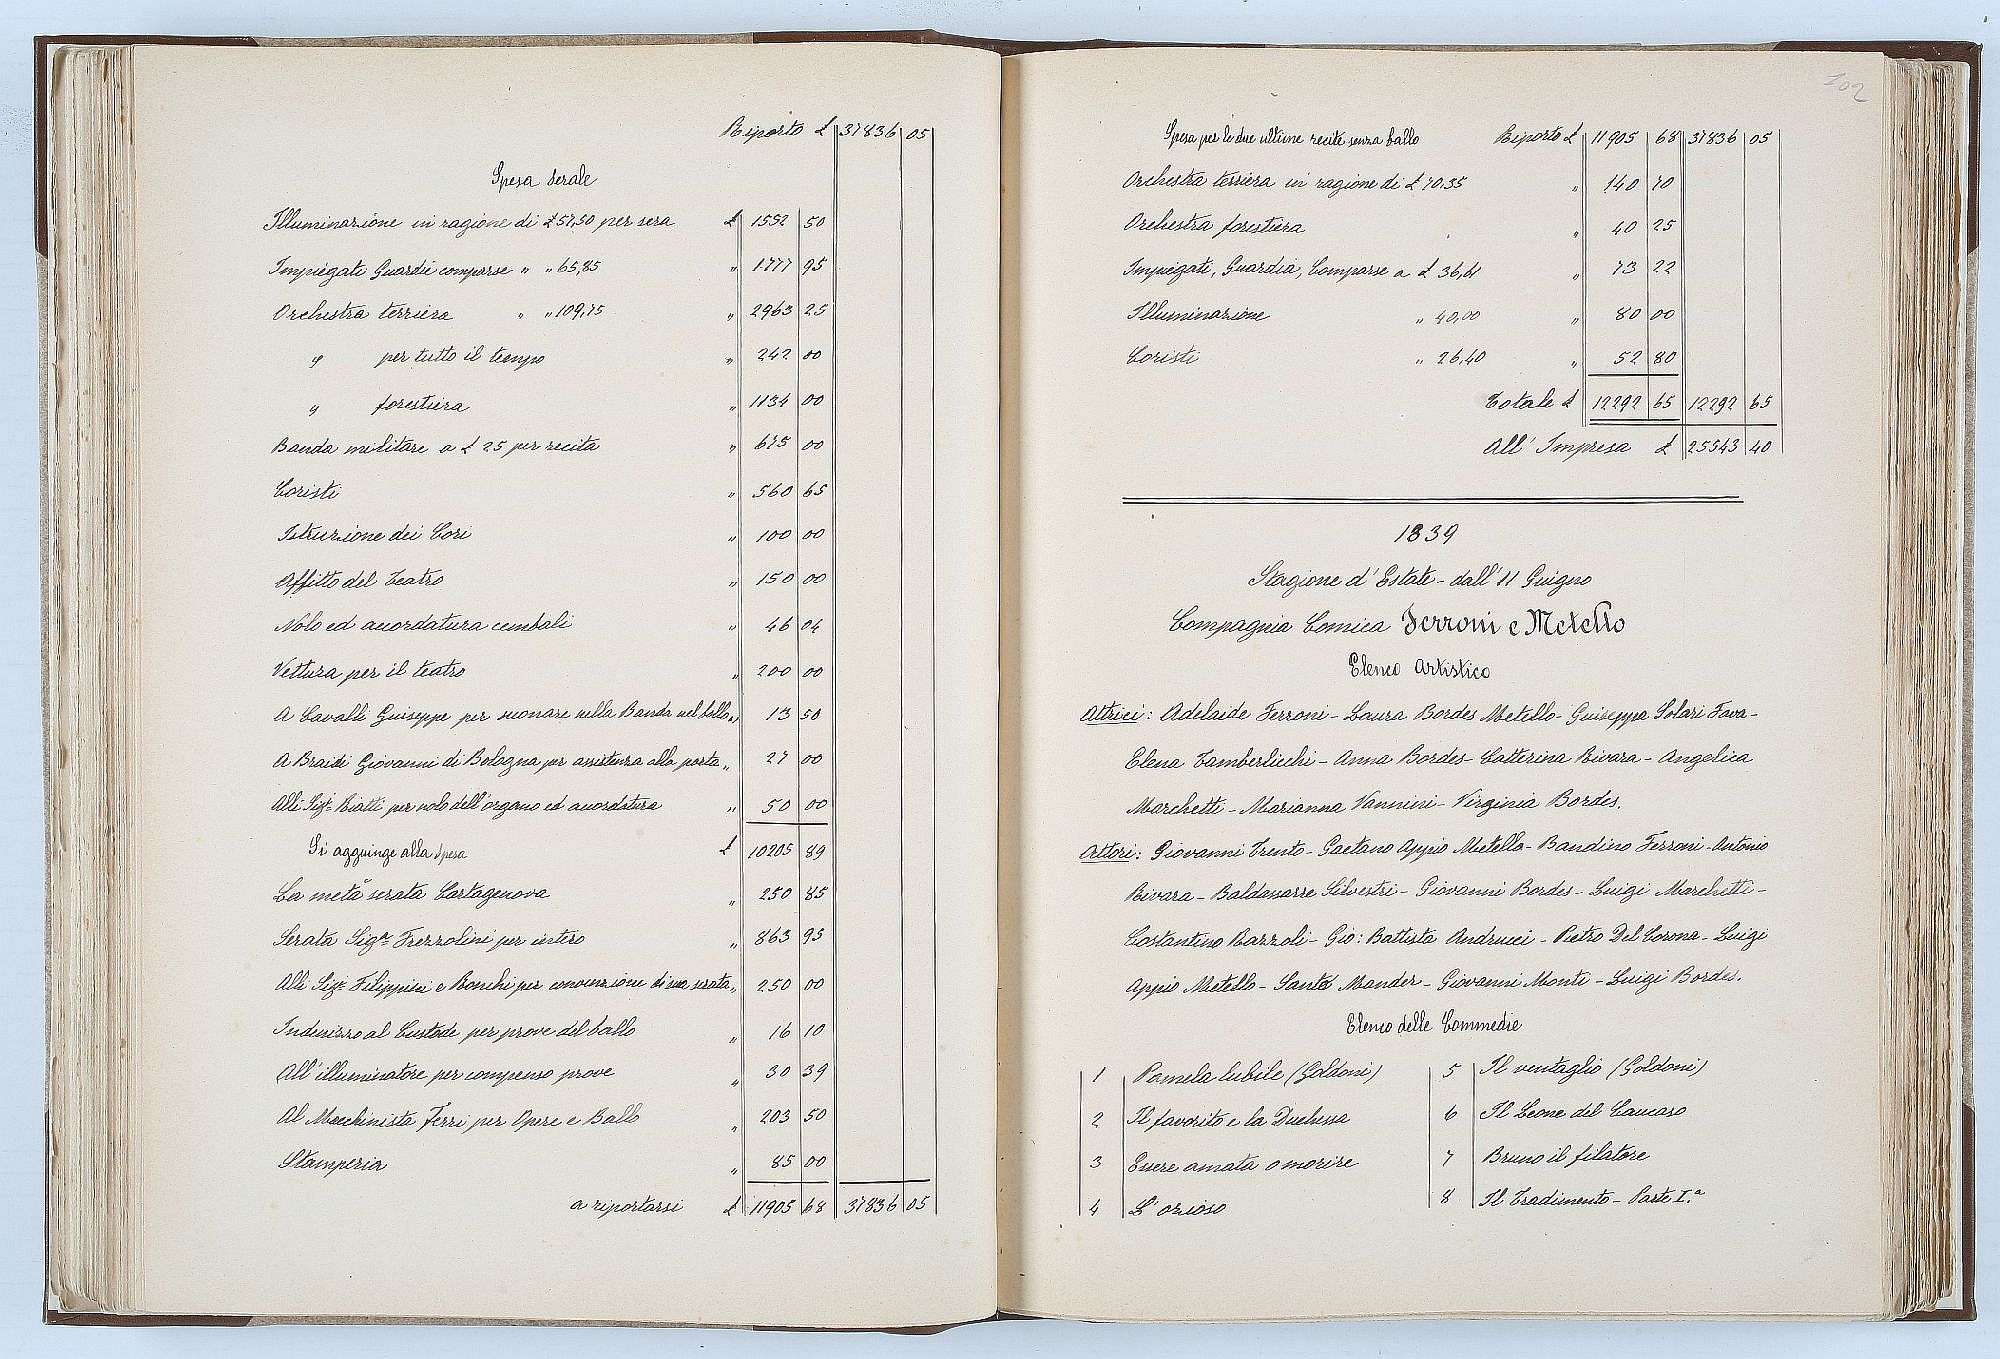 Riporto £ 37836 05
Spesa Serale
Illuminazione in ragione di £ 57,50 per sera £ 1552 50
Impiegati Guardie comparse " " 65,85 " 1777 95
Orchestra terriera " " 109,75 " 2963 25
" per tutto il tempo " 242 00
" forestiera " 1134 00
Banda militare a £ 25 per recita " 675 00
Coristi " 560 65
Istruzione dei Cori " 100 00
Affitto del Teatro " 150 00
Nolo ed accordatura cembali " 46 04
Vettura per il teatro " 200 00
A Cavalli Giuseppe per suonare nella Banda nel ballo " 13 50
A Braidi Giovanni di Bologna per assistenza alla porta " 27 00
Alli Sigi. Riatti per nolo dell'organo ed accordatura " 50 00
Si aggiunge alla spesa £ 10205 89
La metà serata Cartagenova " 250 85
Serata Siga. Frezzolini per intero " 863 95
Alli Sigi. Filippini e Ronchi per convenzione di sua serata " 250 00
Indenizzo al Custode per prove del ballo " 16 10
All'illuminatore per compenso prove " 30 39
Al Macchinista Ferri per Opere e Ballo " 203 50
Stamperia " 85 00
a riportarsi £ 11905 68 37836 05
102
Spesa per le due ultime recite senza ballo Riporto £ 11905 68 37836 05
Orchestra terriera in ragione di £ 70.35 " 140 70
Orchestra forestiera " 40 25
Impiegati, Guardia, Comparse a £ 36,61 " 73 22
Illuminazione " 40,00 " 80 00
Coristi " 26,40 " 52 80
Totale £ 12292 65 12292 65
All' Impresa £ 25543 40
1839
Stagione d'Estate - dall'11 Guigno
Compagnia Comica Ferroni e Metello
Elenco Artistico
Attrici: Adelaide Ferroni - Laura Bordes Metello - Guiseppa Solari Fava -
Elena Tamberlicchi - Anna Bordes - Catterina Rivara - Angelica
Marchetti - Marianna Vannini - Virginia Bordes.
Attori: Giovanni Trento - Gaetano Appio Metello - Bandino Ferroni - Antonio
Rivara - Baldassarre Silvestri - Giovanni Bordes - Luigi Marchetti -
Costantino Razzoli - Gio: Battista Andrucci - Pietro Del Corona - Luigi
Appio Metello - Sante Mander - Giovanni Monti - Luigi Bordes.
Elenco delle Commedie
1 Pamela nubile (Goldoni)
2 Il favorito e la Duchessa
3 Essere amata o morire
4 L'ozioso
5 Il ventaglio (Goldoni)
6 Il Leone del Caucaso
7 Bruno il filatore
8 Il Tradimento - Parte I.a